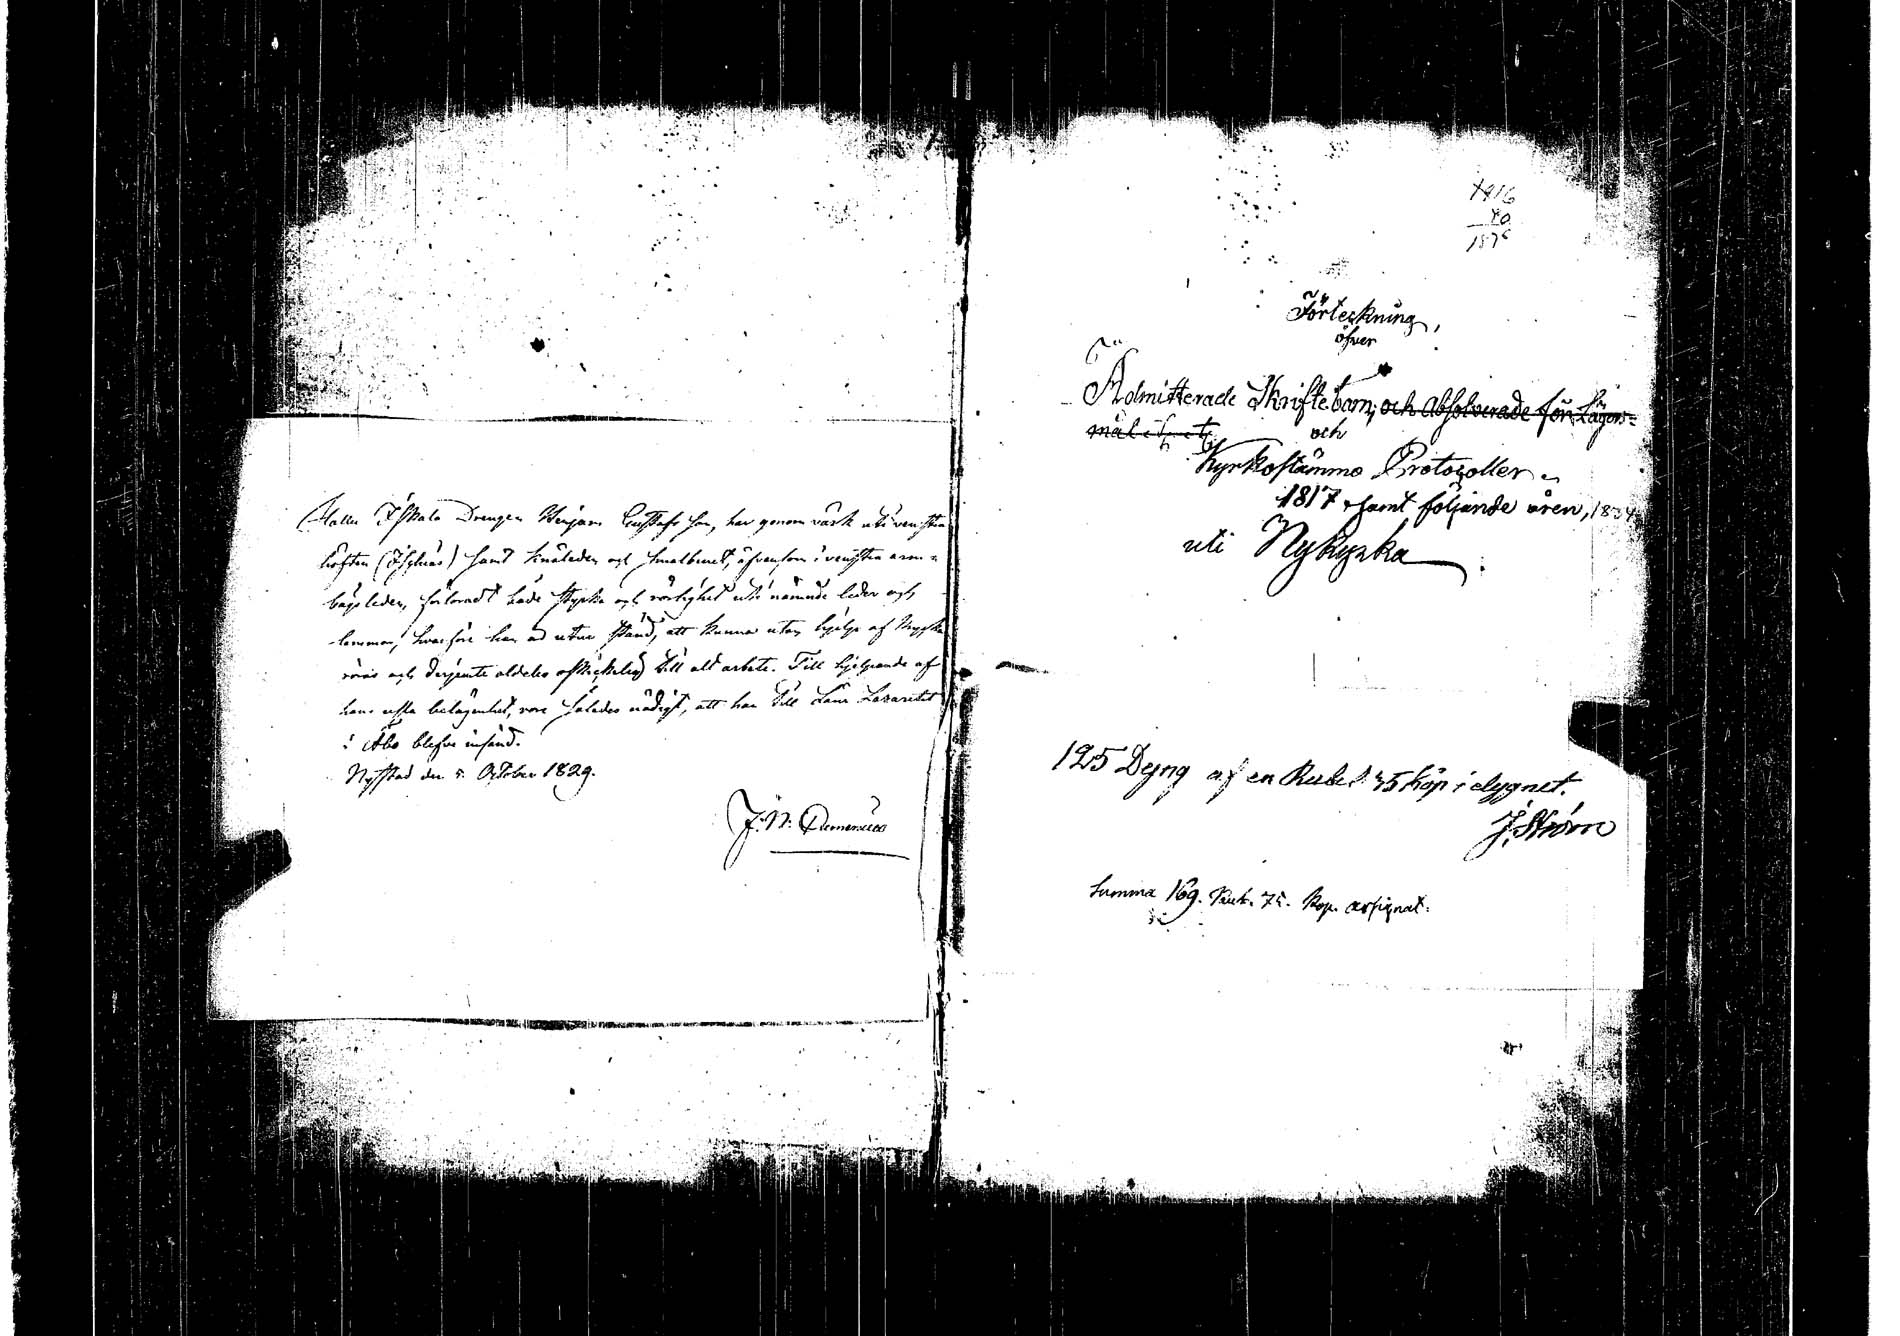 Drengen Benjam Gustafsson, har genom värk uti venstra
höften (Ischias) samt knäleden och smalbenet, äfvensom i venstra arm-
bågsleden, förloradt både styrka och rörlighet uti nämnde leder och
lemmar, hvarföre han är utur stånd, att kunna utan hjelp af krycka
röras och derjemte aldeles oskickelig till alt arbete. Till hjelpande af
hans usla belägenhet, vore således nödigt, att han till Läns Lazarettet
i Åbo blefve insänd.
Nystad den 5. October 1829.
1916
40
1876
Förteckning,
öfver
Admitterade Skriftebarn, och Absolverade för Lägers-
mål
och
Kyrkostämmo Protocoller
1817 samt följande åren, 1834
uti Nykyrka
125 Degng af en Rubel 35 kop i dygnet.
J. Ström
Summa 169. Rub. 75. Kop. assignat.